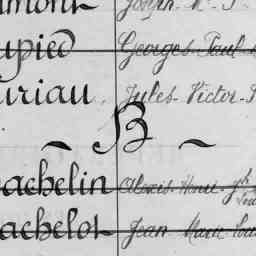 umont Joseph M. J.
upied Georges Paul
uriau Jules Victor
~ B ~
achelin Alexis Henri Jph
achelot Jean Marie Lou